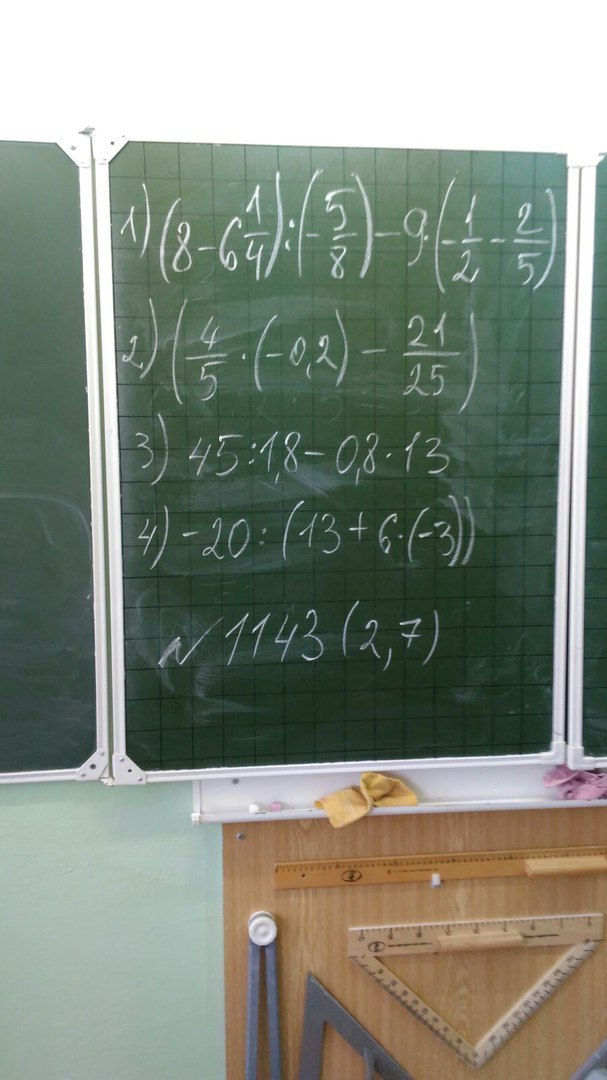 1) (8 - 6 1/4) : (- 5/8) - 9 · (- 1/2 - 2/5)
2) (4/5 · (-0,2) - 21/25)
3) 45 : 1,8 - 0,8 · 13
4) -20 : (13 + 6 · (-3))
N 1143 (2,7)